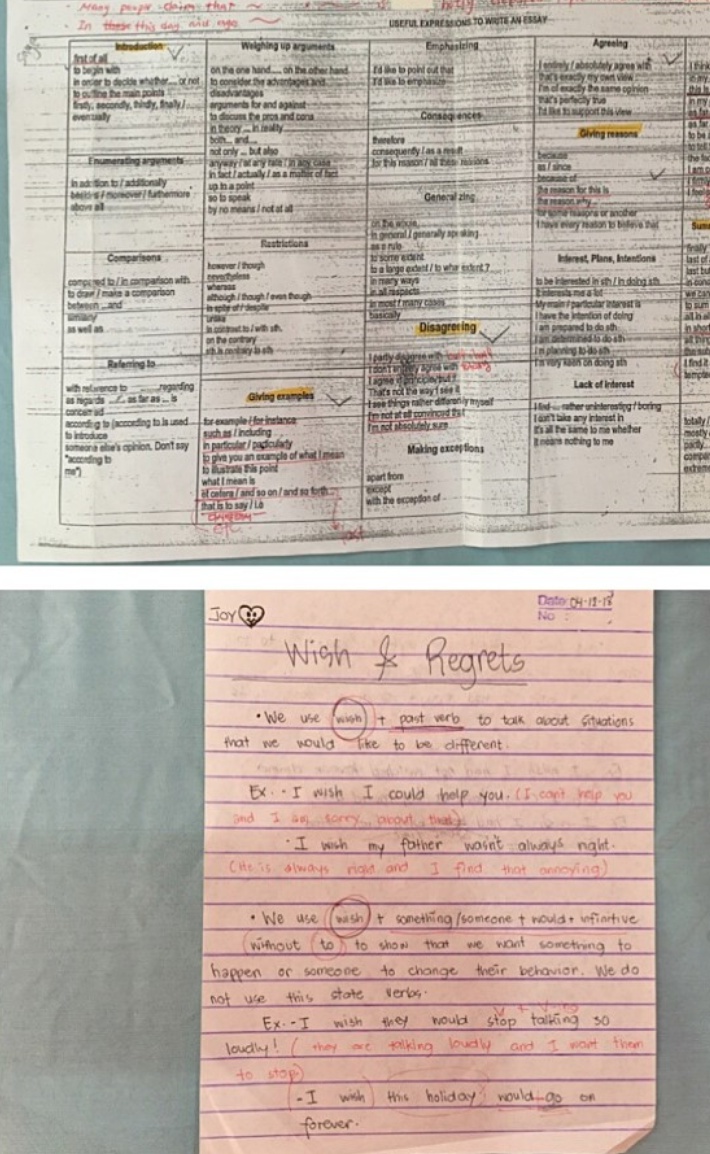 Many people claim that
In this day and age
USEFUL EXPRESSIONS TO WRITE AN ESSAY
Introduction
first of all
to begin with
in order to decide whether.... or not
to outline the main points
firstly, secondly, thirdly, finally /
eventually
Enumerating arguments
in addition to / additionally
besides / moreover / furthermore
above all
Comparisons
compared to / in comparison with
to draw / make a comparison
between ...and
similarly
as well as
Referring to
with reference to regarding
as regards as far as ... is
concerned
according to (according to is used
to introduce
someone else's opinion. Don't say
"according to
me")
Weighing up arguments
on the one hand.... on the other hand
to consider the advantages and
disadvantages
arguments for and against
to discuss the pros and cons
in theory ... in reality
both... and...
not only ... but also
anyway / at any rate / in any case
in fact / actually / as a matter of fact
up to a point
so to speak
by no means / not at all
Restrictions
however / though
nevertheless
whereas
although / though / even though
in spite of / despite
unlike
in contrast to / with sth.
on the contrary
sth is contrary to sth
Giving examples
for example / for instance
such as / including
in particular / particularly
to give you an example of what I mean
to illustrate this point
what I mean is
et cetera / and so on / and so forth
that is to say / i.e
etc.
Emphasizing
I'd like to point out that
I'd like to emphasize
Consequences
therefore
consequently / as a result
for this reason / all these reasons
Generalizing
on the whole
in general / generally speaking
as a rule
to some extent
to a large extent / to what extent?
in many ways
in all respects
in most / many cases
basically
Disagreeing
I partly disagree with
I don't entirely agree with
I agree in principle but
That's not the way I see it
I see things rather differently myself
I'm not at all convinced that
I'm not absolutely sure
Making exceptions
apart from
except
with the exception of
Agreeing
I entirely / absolutely agree with
that's exactly my own view
I'm of exactly the same opinion
that's perfectly true
I'd like to support this view
Giving reasons
because
as / since
because of
the reason for this is
the reason why...
for some reasons or another
I have every reason to believe that
Interest, Plans, Intentions
to be interested in sth / in doing sth
it interests me a lot
My main / particular interest is
I have the intention of doing
I am prepared to do sth
I am determined to do sth
I'm planning to do sth
I'm very keen on doing sth
Lack of Interest
I find ... rather uninteresting / boring
I don't take any interest in
It's all the same to me whether
It means nothing to me
Joy
Date 04-12-18
No :
Wish & Regrets
• We use wish + past verb to talk about situations
that we would like to be different.
Ex. - I wish I could help you. (I can't help you
and I am sorry about that)
- I wish my father wasn't always right.
(He is always right and I find that annoying)
• We use wish + something/someone + would + infinitive
without to to show that we want something to
happen or someone to change their behavior. We do
not use this state verbs.
V + V-ing
Ex. - I wish they would stop talking so
loudly! ( they are talking loudly and I want them
to stop)
- I wish this holiday would go on
forever.